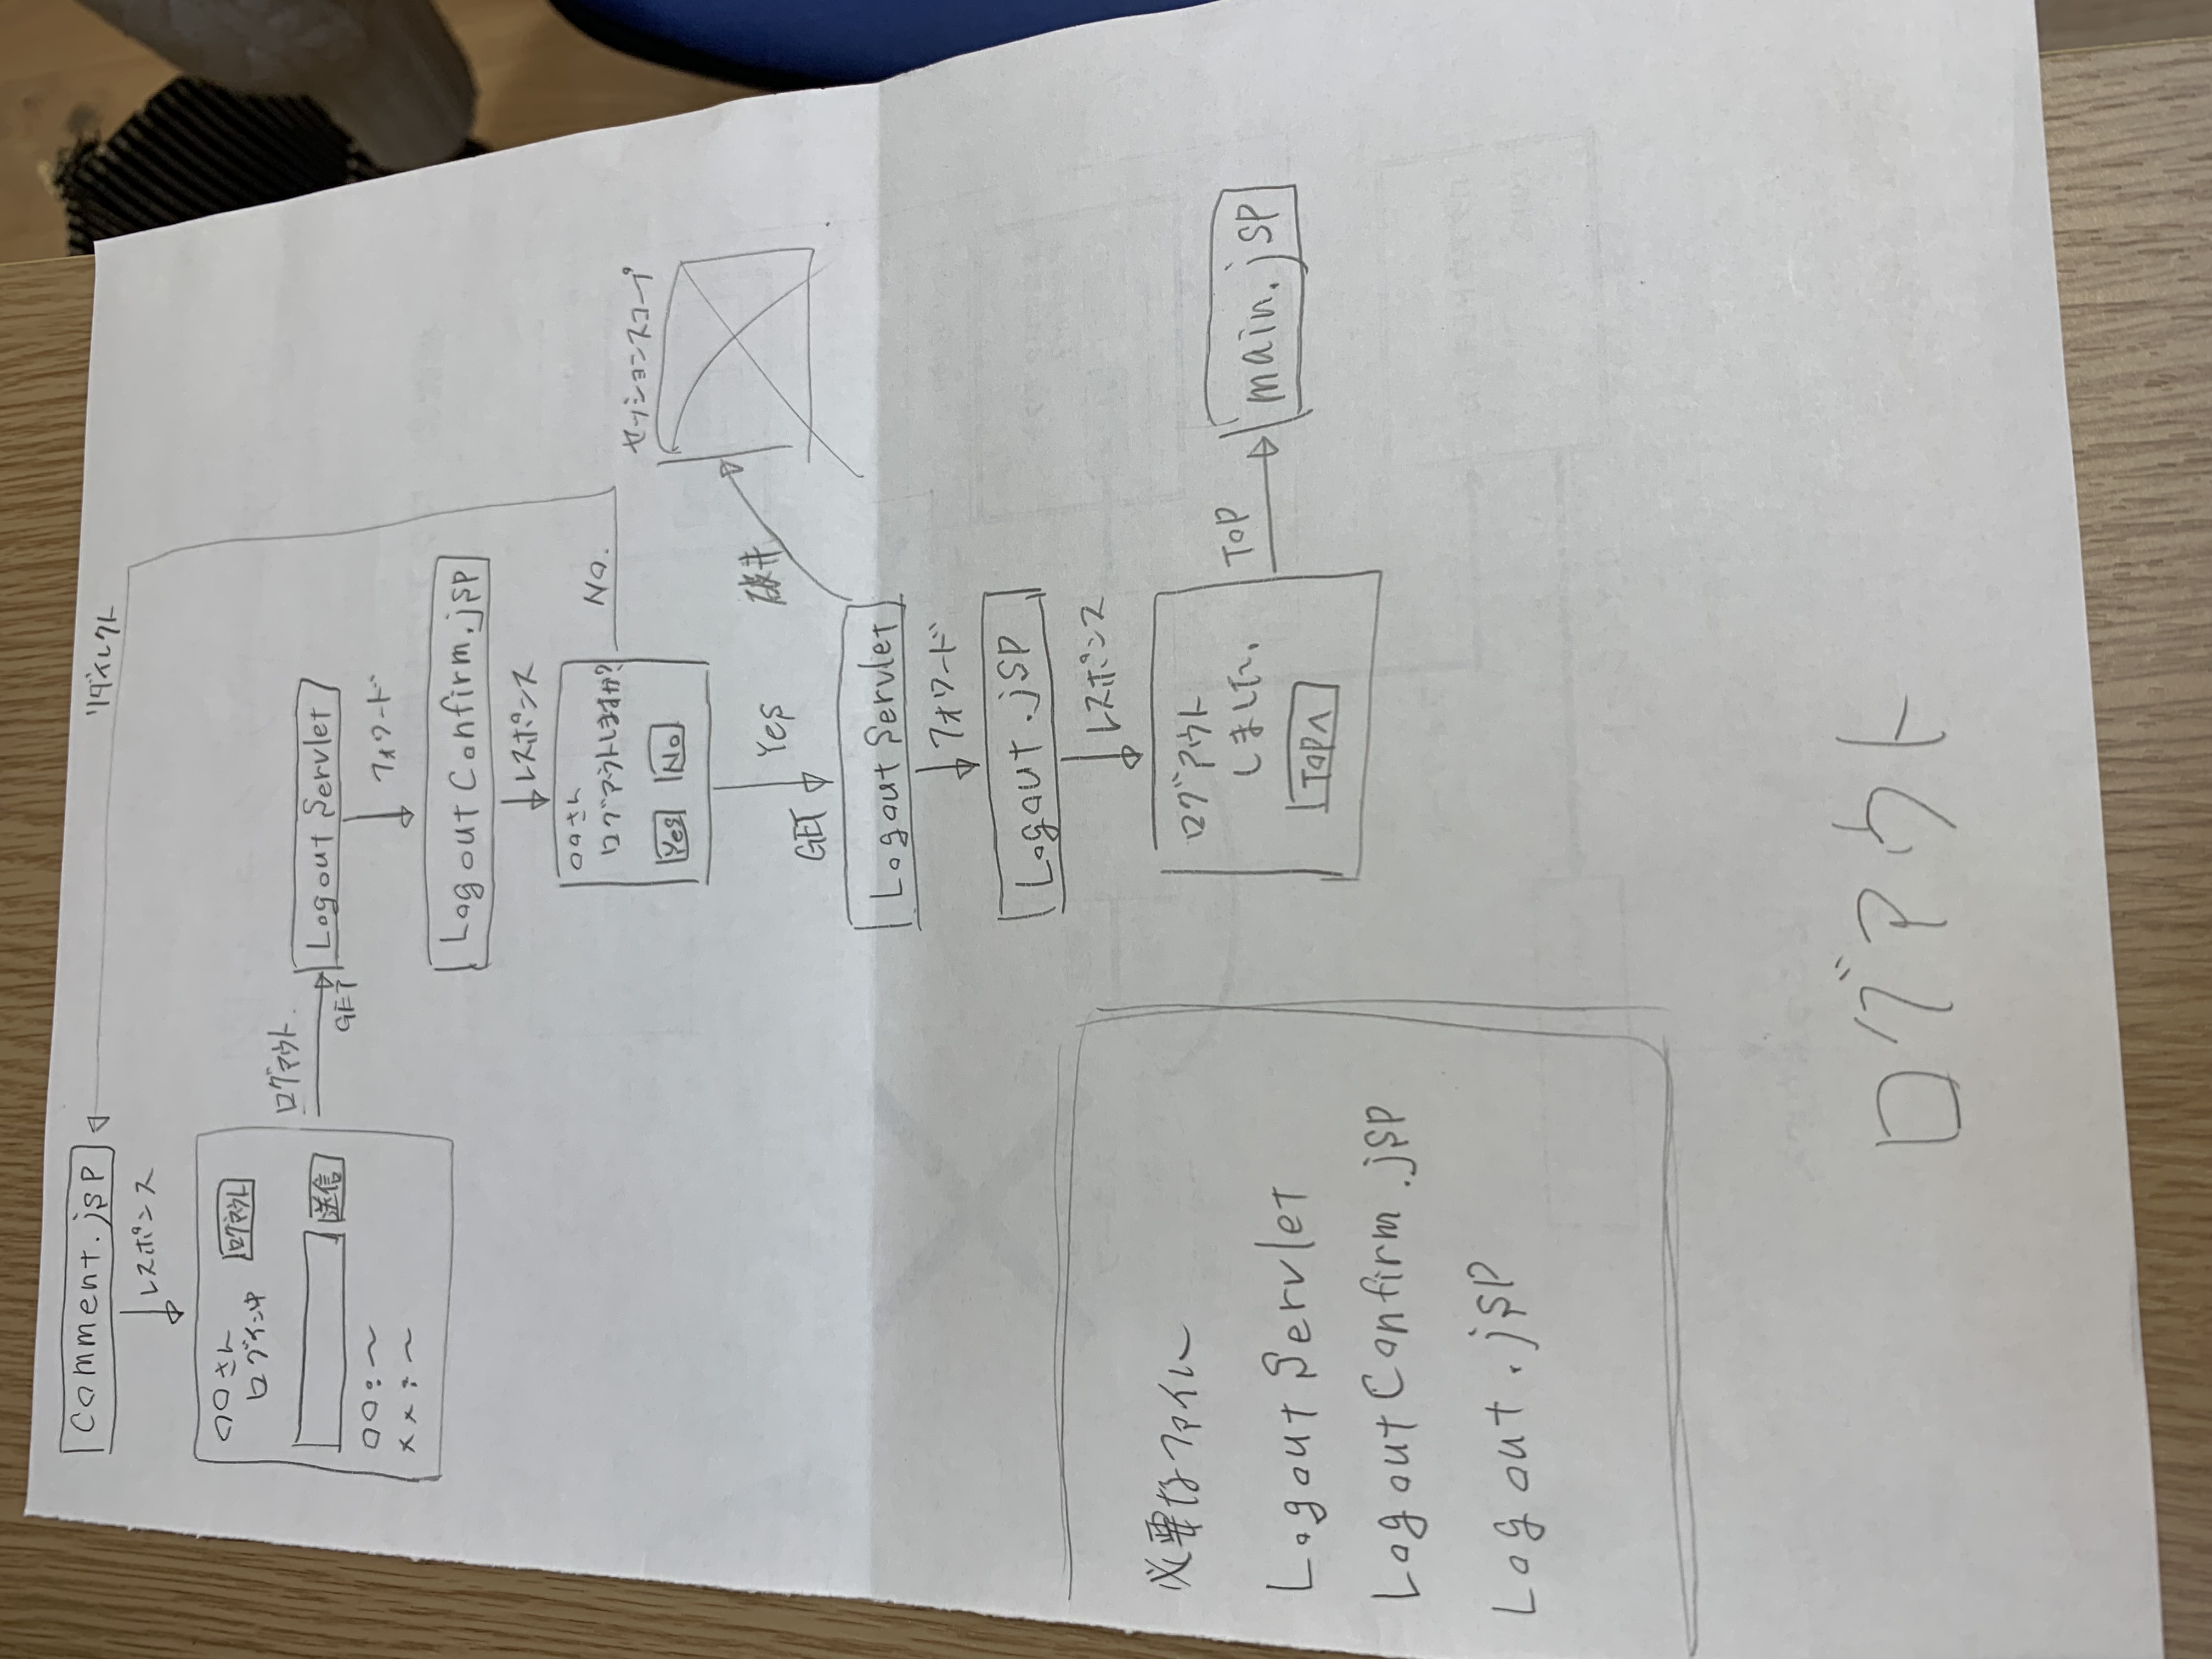 Comment.jsp
リダイレクト
レスポンス
○○さん
ログイン中
ログアウト
送信
○○:~
××:~
ログアウト.
GET
Logout Servlet
フォワード
Logout Confirm.jsp
レスポンス
○○さん
ログアウトしますか?
Yes No
No.
セッションスコープ
Yes
GET
Logout Servlet
フォワード
Logout.jsp
レスポンス
ログアウト
しました.
TOPへ
TOP
main.jsp
必要なファイル
Logout Servlet
Logout Confirm.jsp
Logout.jsp
ログアウト